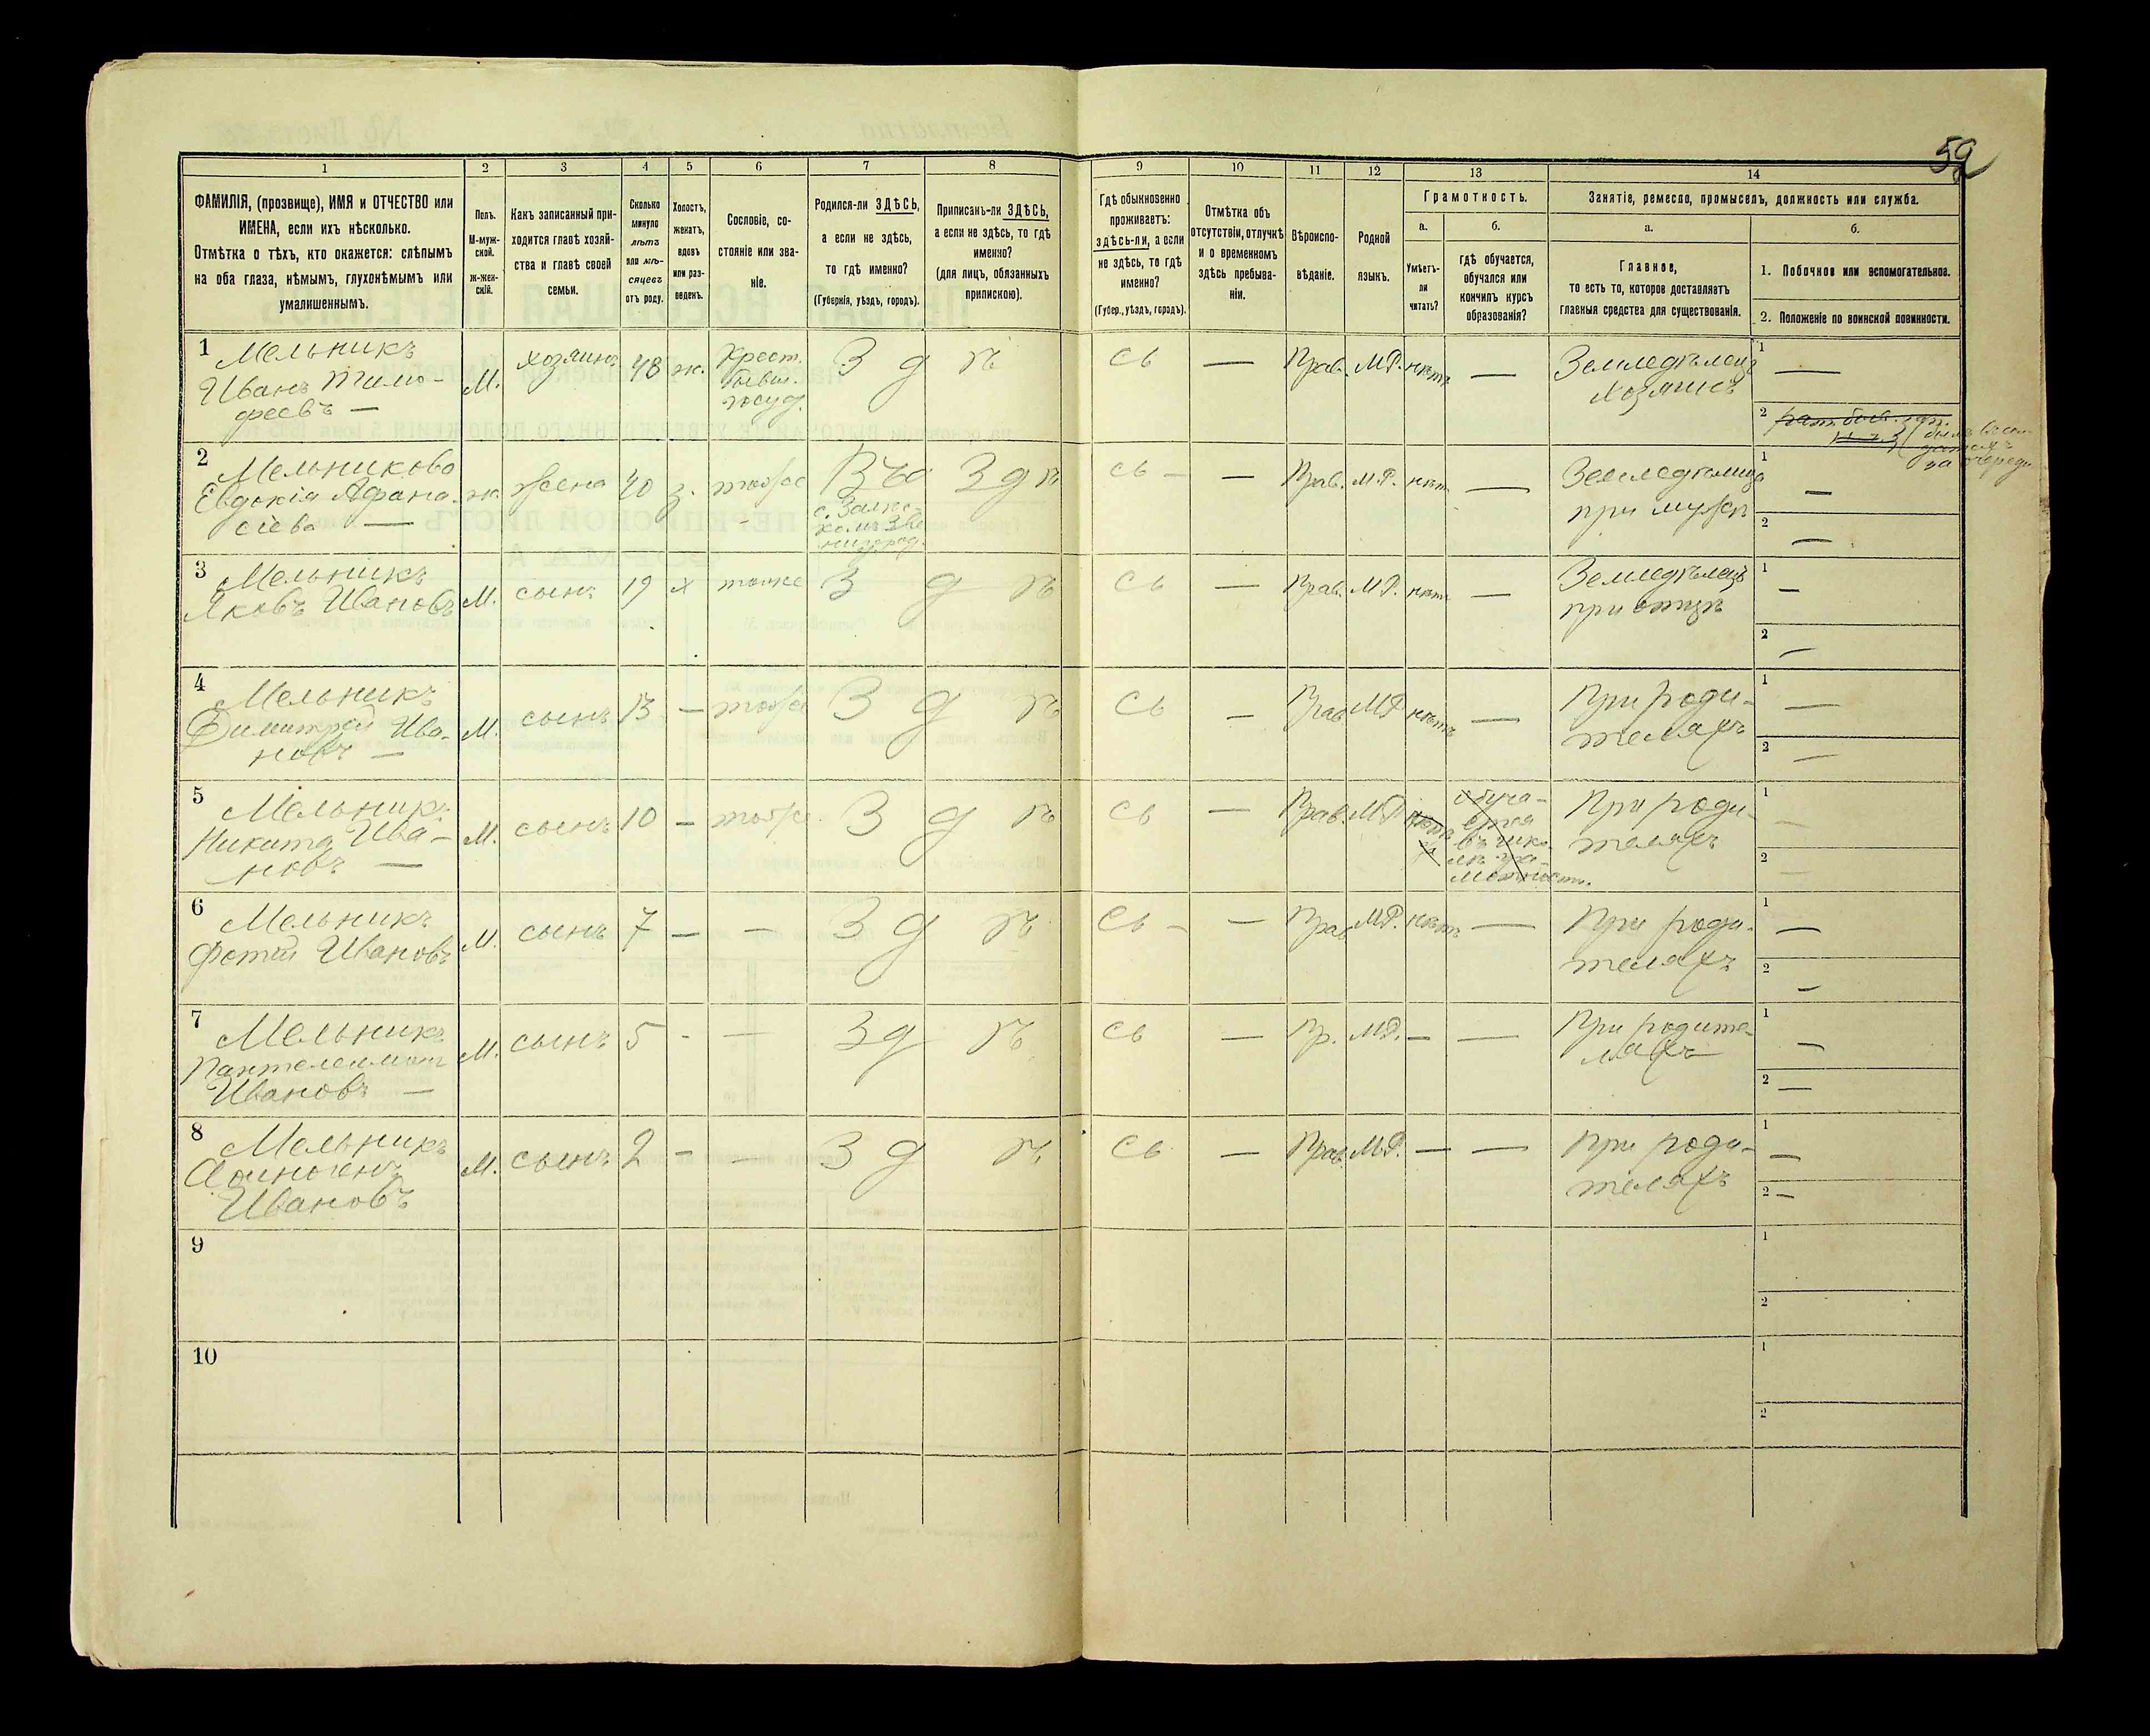 59
1 2 3 4 5 6 7 8 9 10 11 12 13 14
ФАМИЛІЯ, (прозвище), ИМЯ и ОТЧЕСТВО или
ИМЕНА, если ихъ нѣсколько.
Отмѣтка о тѣхъ, кто окажется: слѣпымъ
на оба глаза, нѣмымъ, глухонѣмымъ или
умалишеннымъ.
Полъ.
М-муж-
ской.
Ж-жен-
скій.
Какъ записанный при-
ходится главѣ хозяй-
ства и главѣ своей
семьи.
Сколько
минуло
лѣтъ
или мѣ-
сяцевъ
отъ роду.
Холостъ,
женатъ,
вдовъ
или раз-
веденъ.
Сословіе, со-
стояніе или зва-
ніе.
Родился-ли ЗДѢСЬ,
а если не здѣсь,
то гдѣ именно?
(Губернія, уѣздъ, городъ).
Приписанъ-ли ЗДѢСЬ,
а если не здѣсь, то гдѣ
именно?
(для лицъ, обязанныхъ
припискою).
Гдѣ обыкновенно
проживаетъ:
здѣсь-ли, а если
не здѣсь, то гдѣ
именно?
(Губер., уѣздъ, городъ).
Отмѣтка объ
отсутствіи, отлучкѣ
и о временномъ
здѣсь пребыва-
ніи.
Вѣроиспо-
вѣданіе.
Родной
языкъ.
Грамотность.
а.
Умѣетъ-
ли
читать?
б.
гдѣ обучается,
обучался или
кончилъ курсъ
образованія?
Занятіе, ремесло, промыселъ, должность или служба.
а.
Главное,
то есть то, которое доставляетъ
главныя средства для существованія.
б.
1. Побочное или вспомогательное.
2. Положеніе по воинской повинности.
1 Мельникъ
Иванъ Тимо-
феевъ —
М.
хозяинъ
48
ж.
Крест.
бывш.
З д ѣ
сь
—
Прав.
М.Р.
нѣтъ
—
Земледѣлецъ
хозяинъ
1 —
2
2 Мельникова
Евдокія Афана-
сіева —
ж.
жена
40
з.
тоже
З д ѣ
сь —
—
Прав.
М.Р.
нѣтъ
—
Земледѣлица
при мужѣ
1 —
2 —
3 Мельникъ
Яковъ Ивановъ
М.
сынъ
19
х
тоже
З д ѣ
сь
—
Прав.
М.Р.
нѣтъ
—
Земледѣлецъ
при отцѣ
1 —
2 —
4 Мельникъ
Димитрій Ива-
новъ —
М.
сынъ
13
—
тоже
З д ѣ
сь
—
Прав
М.Р
нѣтъ
—
При роди-
теляхъ
1 —
2 —
5 Мельникъ
Никита Ива-
новъ —
М.
сынъ
10
—
тоже
З д ѣ
сь
—
Прав.
М.Р
нѣтъ
обуча-
ется
въ шко-
лѣ гра-
мотности.
При роди-
теляхъ
1 —
2 —
6 Мельникъ
Фотій Ивановъ
М.
сынъ
7
—
—
З д ѣ
сь —
—
Прав
М.Р.
нѣтъ
—
При роди-
теляхъ
1 —
2 —
7 Мельникъ
Пантелеимонъ
Ивановъ —
М.
сынъ
5
-
—
З д ѣ
сь
—
Пр.
М.Р.
—
—
При родите-
ляхъ
1 —
2 —
8 Мельникъ
Ивановъ
М.
сынъ
2
-
—
З д ѣ
сь
—
Прав.
М.Р.
—
—
При роди-
теляхъ
1 —
2 —
9
1
2
10
1
2